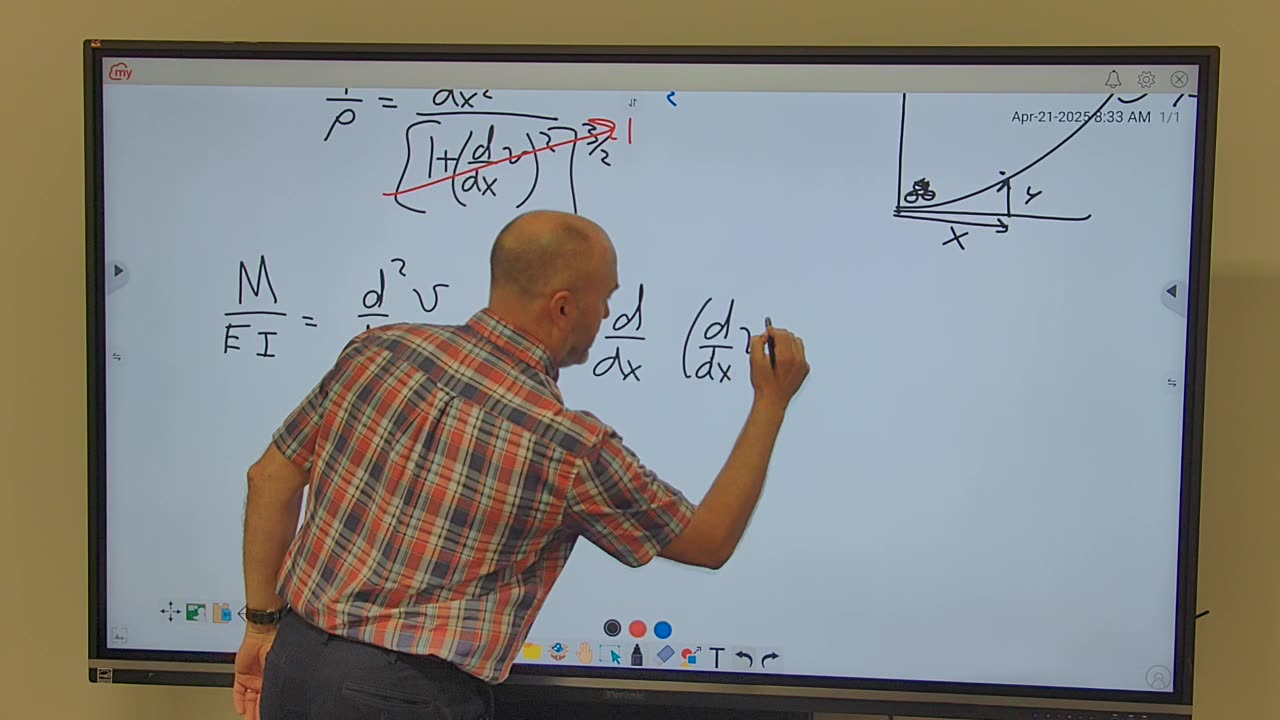 my
Apr-21-2025 8:33 AM 1/1
1/ρ = dx²
[1+(d/dx v)²]^3/2 1
y
x
M/EI = d² v d/dx (d/dx v
T